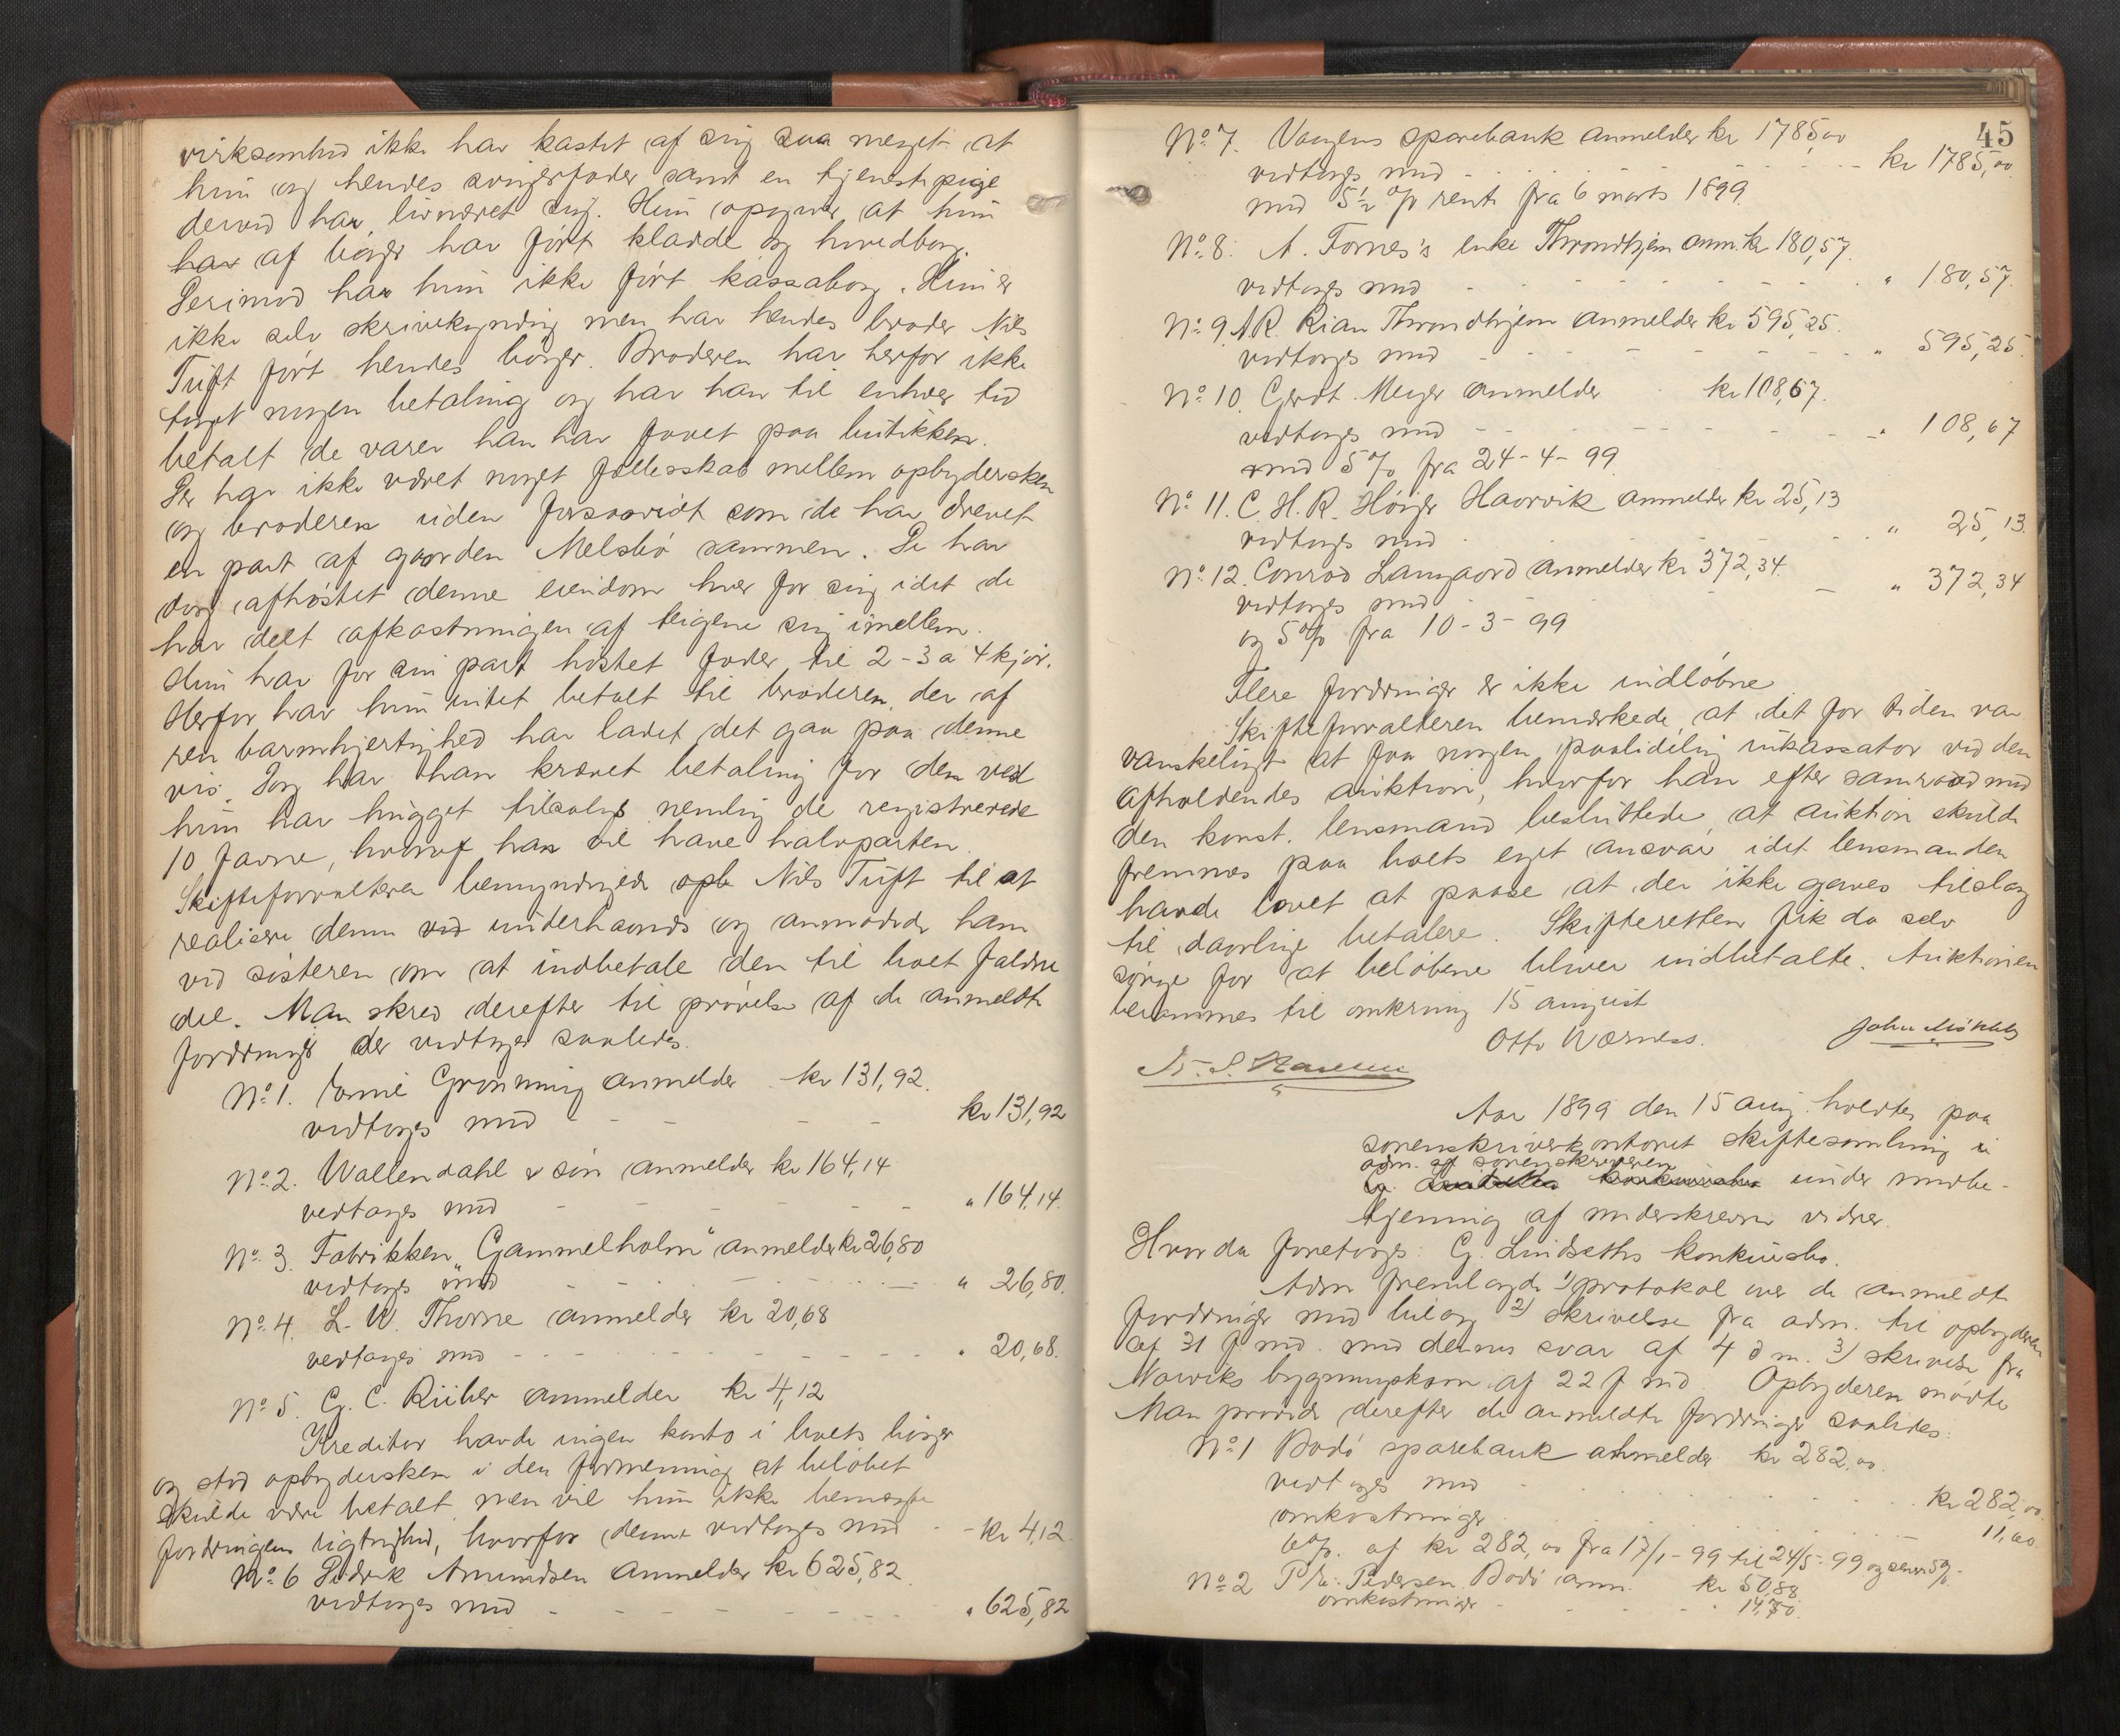 virksomhed ikke har kastet af sig saa meget at
hun og hendes svigerfader samt en tjenestepige
derved har livnæret sig. Hun opgiver at hun
har af bøger har ført kladde og hovedbog.
Derimod har hun ikke ført kassabog. Hun er
ikke selv skrivekyndig men har hendes broder Nils
Tuft ført hendes bøger. Broderen har herfor ikke
taget nogen betaling og har han til enhver tid
betalt de varer han har faaet paa butikken.
Der har ikke været noget fællesskab mellem opbydersken
og broderen uden forsaavidt som de har drevet
en part af gaarden Melsbø sammen. De har
dog afhøstet denne eiendom hver for sig idet de
har delt afkastningen af teigene sig imellem.
Hun har for sin part høstet foder til 2-3 a 4 kjør.
Herfor har hun intet betalt til broderen, der af
ren barmhjertighed har ladet det gaa paa denne
vis. Dog har han krævet betaling for den ved
hun har hugget tilsalgs nemlig de registrerede
10 favne, hvoraf han vil have halvparten.
Skifteforvalteren bemyndiget opb Nils Tuft til at
realisere denne ved underhaands og anmodede ham
ved søsteren om at indbetale den til boet faldne
del. Man skred derefter til prøvelse af de anmeldte
fordringer der vedtoges saaledes.
No 1. Grønning anmelder kr 131,92.
vedtoges med - - - - kr 131,92
No 2. Wallendahl & søn anmelder kr 164,14
vedtoges med - - - - " 164,14.
No 3. Fabrikken "Gammelholm" anmelder kr 26,80
vedtoges med - - - - " 26,80.
No 4. L. W. Thorne anmelder kr 20,68
vedtoges med - - - - " 20,68.
No 5. G. C. Riiber anmelder kr 4,12
Kreditor havde ingen konto i boets bøger
og stod opbydersken i den formening at beløbet
skulde være betalt men vil hun ikke benægte
fordringens rigtighed, hvorfor denne vedtoges med - - kr 4,12.
No 6 Didrik Amundsen anmelder kr 625,82
vedtoges med - - - - " 625,82
45
No 7. Vaagens sparebank anmelder kr 1785,00
vedtoges med - - - - kr 1785,00
med 5½ % rente fra 6 marts 1899.
No 8. A. Fornes's enke Throndhjem anm. kr 180,57.
vedtoges med - - - - " 180,57.
No 9. A R. Rian Throndhjem anmelder kr 595,25.
vedtoges med - - - - " 595,25.
No 10. Gerdt Meyer anmelder kr 108,67.
vedtoges med - - - - " 108,67
med 5 % fra 24-4-99
No 11. C. H. R. Høyer Havrvik anmelder kr 25,13
vedtoges med - - - - " 25,13.
No 12. Conrad Langaard anmelder kr 372,34.
vedtoges med - - - - " 372,34
og 5 % fra 10-3-99
Flere fordringer er ikke indløbne
Skifteforvalteren bemærkede at det for tiden var
vanskeligt at faa nogen paalidelig inkassator ved den
afholdendes auktion, hvorfor han efter samraad med
den konst. lensmand besluttede, at auktion skulde
fremmes paa boets eget ansvar idet lensmanden
havde lovet at paase at der ikke gaves tilslag
til daarlige betalere. Skifteretten fik da selv
sørge for at beløbene bliver indbetalte. Auktionen
berammes til omkring 15 august
Otto Wærness.
Aar 1899 den 15 aug. holdtes paa
sorenskriverkontoret skiftesamling i
adm. af sorenskriveren
under medbe-
tjening af underskrevne vidner.
Hvorda foretoges: G. Lindseths konkursbo.
Adm fremlagde 1) protokol over de anmeldte
fordringer med bilag 2) skrivelse fra adm. til opbyderen
af 31 f md. med dennes svar af 4 d m. 3) skrivelse fra
Narviks bygningskom. af 22 f md. Opbyderen mødte
Man prøvede derefter de anmeldte fordringer saaledes:
No 1 Bodø sparebank anmelder kr 282,00.
vedtoges med - - - - kr 282,00.
omkostninger - - - - 11,60.
6 % af kr 282,00 fra 17/1-99 til 24/5-99 og senere 5 %.
No 2 Pedersen Bodø anm. kr 50,88.
omkostninger - - - - 14,70.